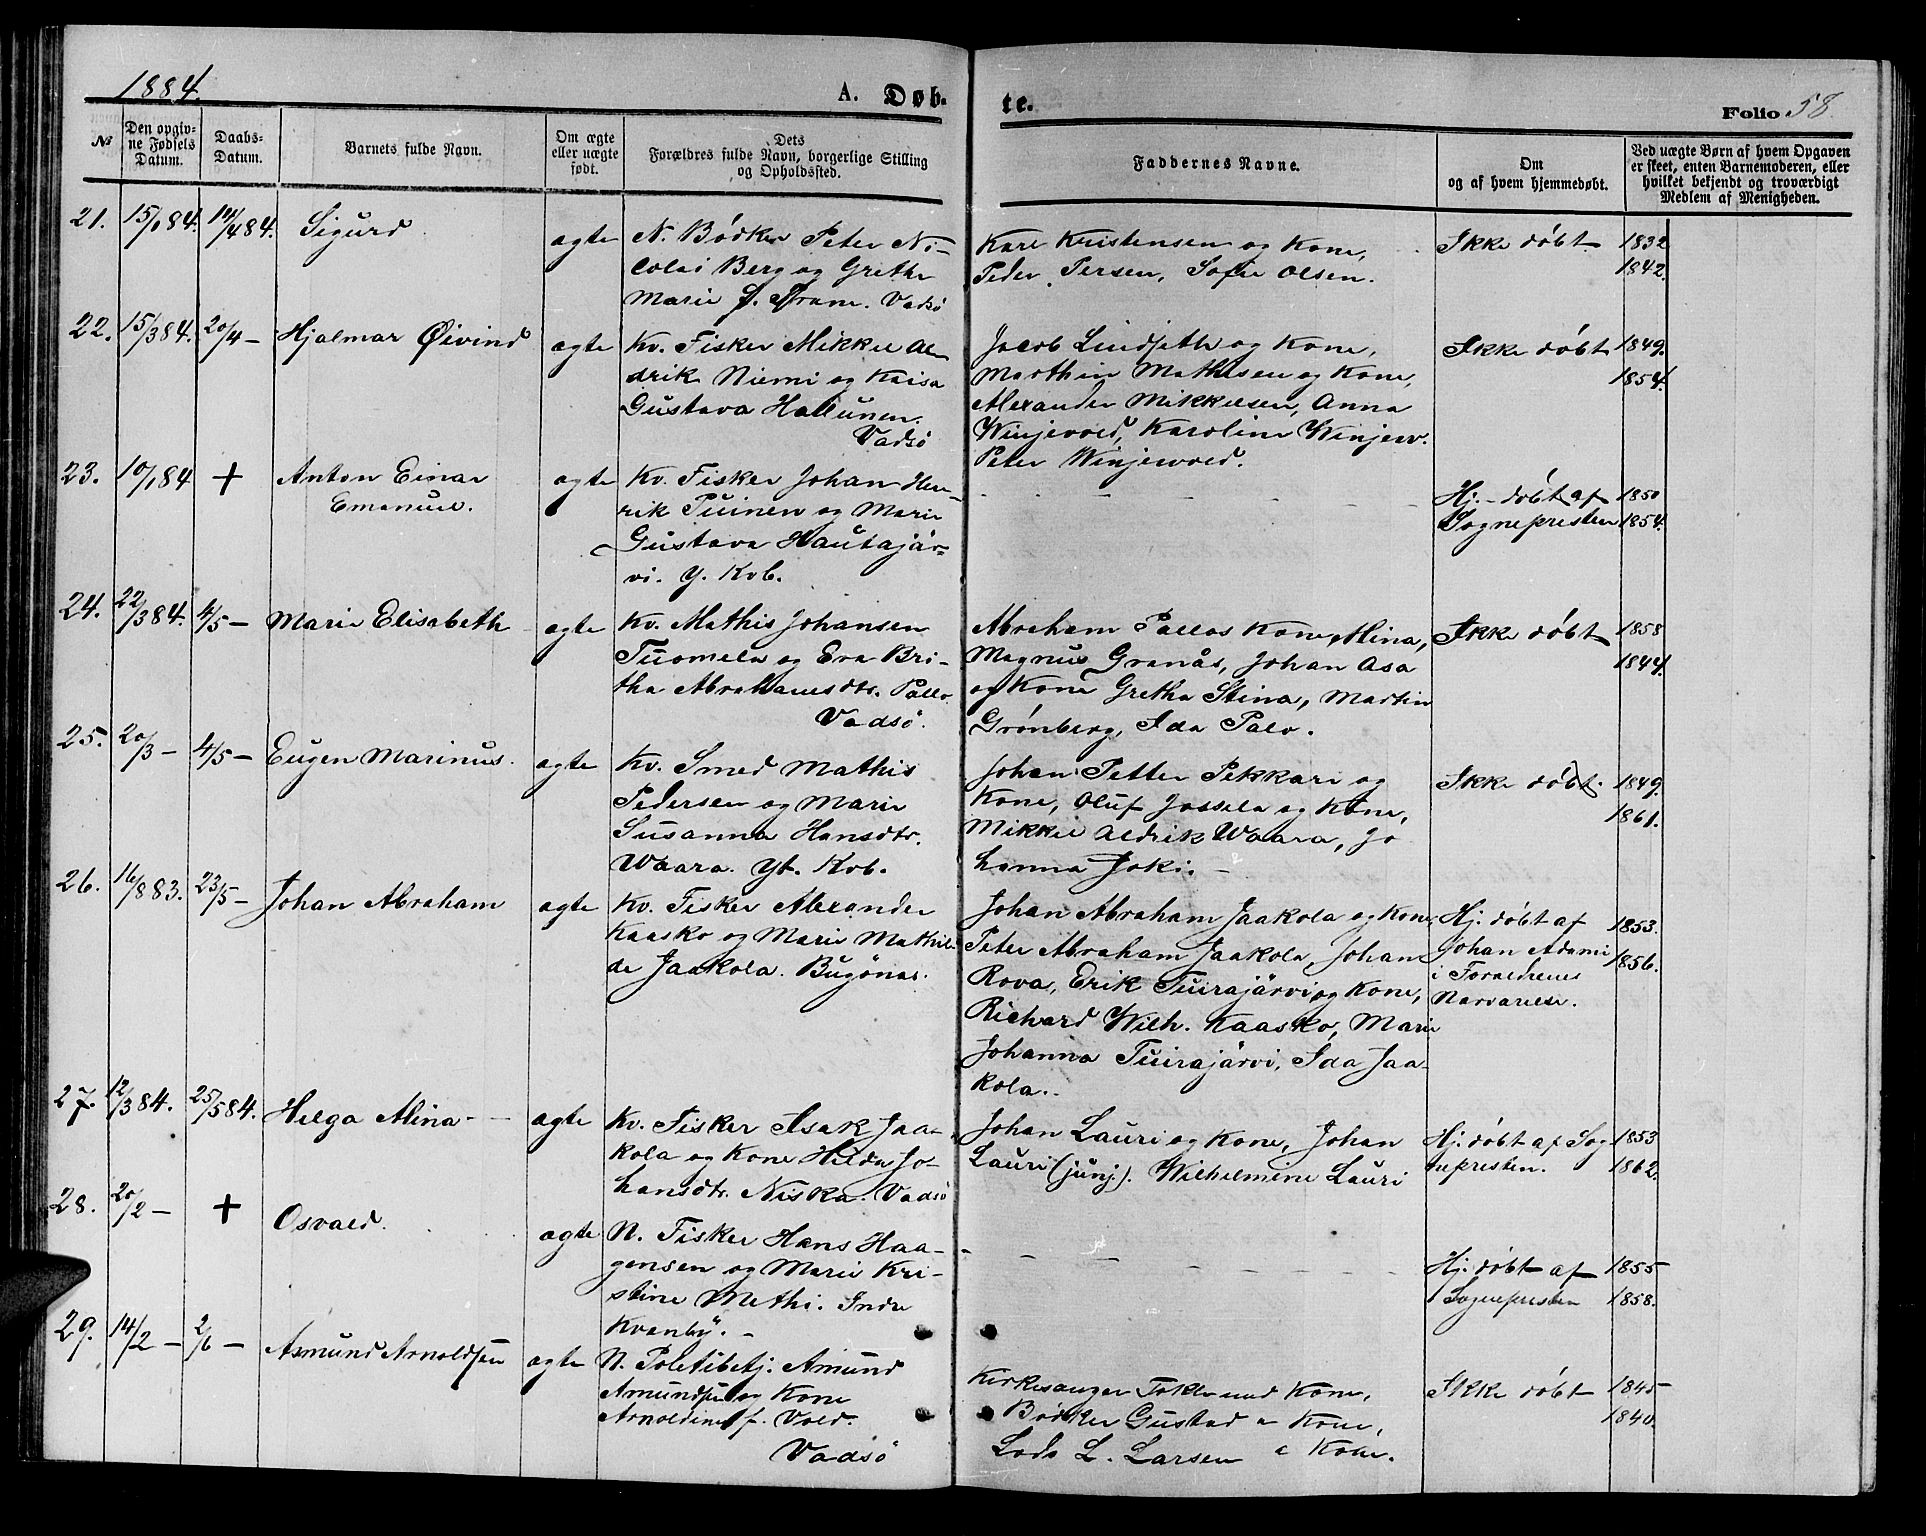 1884.
A. Døb-
te.
Folio 58.
№
Den opgiv-
ne Fødsels
Datum.
Daabs-
Datum.
Barnets fulde Navn.
Om ægte
eller uægte
født.
Dets
Forældres fulde Navn, borgerlige Stilling
og Opholdssted.
Faddernes Navne.
Om
og af hvem hjemmedøbt.
Ved uægte Børn af hvem Opgaven
er skeet, enten Barnemoderen, eller
hvilket bekjendt og troværdigt
Medlem af Menigheden.
21. 15/1 84. 14/4 84. Sigurd
ægte
N. Bødker Peter Ni-
colai Berg og Grethe
Marie J. Fram. Vadsö
Karl Kristensen og Kone,
Peder Persen, Sofie Olsen.
Ikke døbt
1832
1842.
22. 15/3 84. 20/4 - Hjalmar Øivind
ægte
Kv. Fisker Mikkel Al
drik Niemi og Kaisa
Gustava Hallunen.
Vadsö
Jacob Lindseth og Kone,
Marthin Mathisen og Kone,
Alexander Mikkelsen, Anna
Winjevold, Karoline Winjev.
Peter Winjevold.
Ikke døbt
1849.
1854.
23. 10/1 84 + Anton Einar
Emanuel.
ægte
Kv. Fisker Johan Hen-
rik Puinen og Marie
Gustava Hautajär-
vi. Y. Kvb.
- - - - -
Hj.-døbt af
Sognepresten
1850
1854.
24. 22/3 84. 4/5 - Marie Elisabeth
ægte
Kv. Mathis Johansen
Tuomela og Eva Bri-
tha Abrahamsdtr. Pallo.
Vadsö.
Abraham Pallos Kone, Alina,
Magnus Granås, Johan Asa
og Kone Gretha Stina, Martin
Grönberg, Ida Palo.
Ikke døbt
1858
1844.
25. 20/3 - 4/5 - Eugen Marinus.
ægte
Kv. Smed Mathis
Pedersen og Marie
Susanna Hansdtr.
Waara. Yt. Kvb.
Johan Petter Pekkari og
Kone, Oluf Jossela og Kone,
Mikkel Aldrik Waara, Jo
hanna Joki. -
Ikke døbt.
1849.
1861.
26. 16/8 83. 23/5 - Johan Abraham
ægte
Kv. Fisker Alexander
Kaasko og Marie Mathil-
de Jaakola. Bugönæs.
Johan Abraham Jaakola og Kone,
Peter Abraham Jaakola, Johan
Rova, Erik Tuirajärvi og Kone,
Richard Wilh. Kaasko, Marie
Johanna Tuirajärvi, Ida Jaa-
kola.
Hj. døbt af
Johan Adami
i Forældrenes
Nærværelse.
1853.
1856.
27. 12/3 84. 25/5 84. Helga Alina -
ægte
Kv. Fisker Isak Jaa-
kola og Kone Hilda Jo-
hansdtr. Niska. Vadsö
Johan Lauri og Kone, Johan
Lauri (junj.). Wilhelmine Lauri
Hj. døbt af Sog
nepresten.
1853
1862.
28. 20/2 - + Osvald.
ægte
N. Fisker Hans Haa-
gensen og Marie Kri-
stine Methi. Indre
Kvanby. -
- - - - -
Hj. døbt af
Sognepresten
1855
1858.
29. 14/2 - 2/6 - Asmund Arnoldsen
ægte
N. Politibetj. Amund
Amundsen og Kone
Arnoldine f. Vold.
Vadsö
Kirkesanger Tokle med Kone,
Bødker Gustad - Kone,
Lods L. Larsen - Kone.
Ikke døbt
1845
1840.